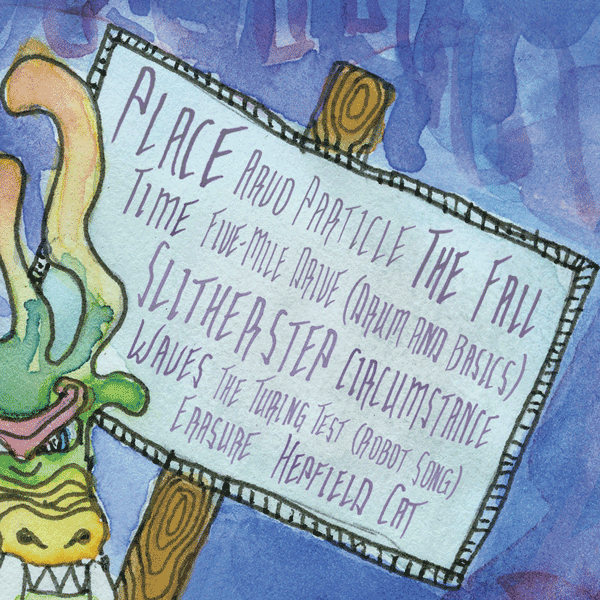 PLACE ARUO PARTICLE THE FALL
TIME FIVE-MILE DRIVE (DRUM AND BASICS)
SLITHERSTEP CIRCUMSTANCE
WAVES THE TURING TEST (ROBOT SONG)
ERASURE HEPFIELD CAT